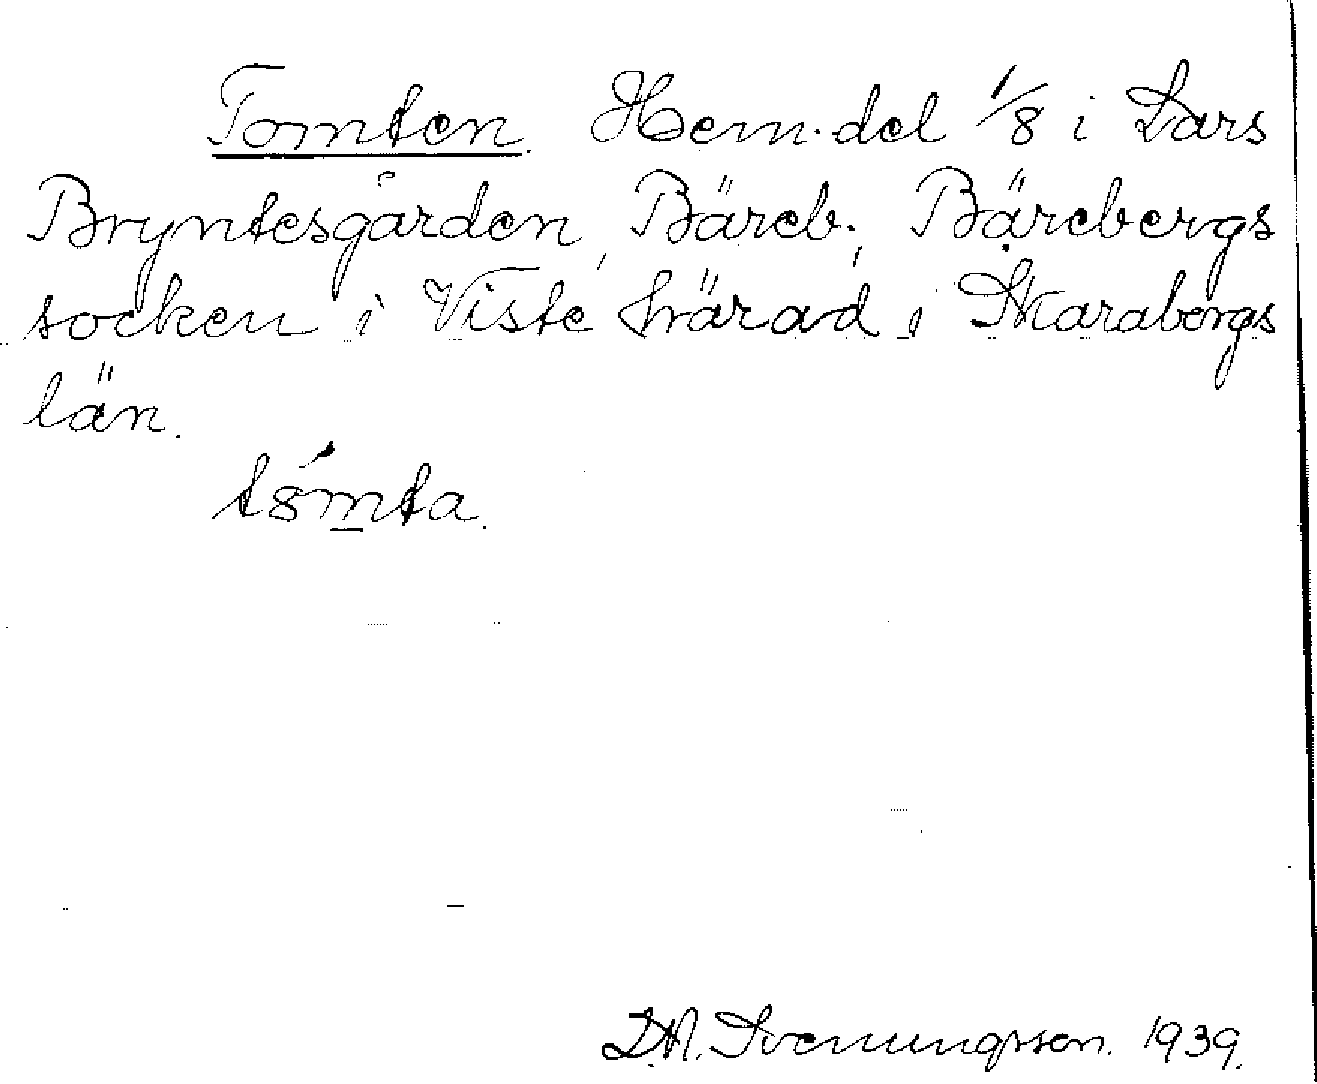 Tomten. Hem.del 1/8 i Lars
Bryntesgården, Bäreb., Bärebergs
socken i Viste härad i Skarabergs
län.
tȣ́mta.
D.A. Svenungsson. 1939.